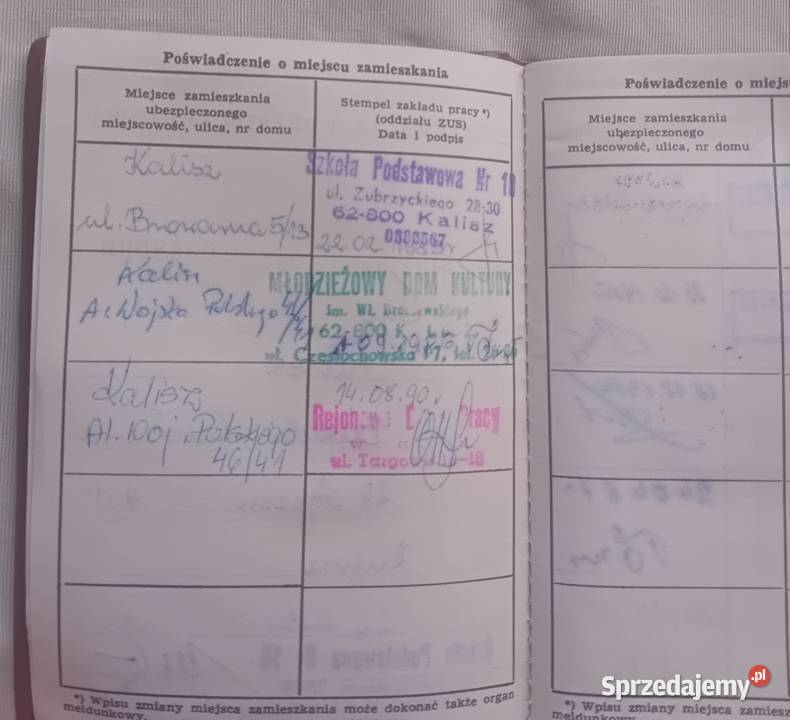 Poświadczenie o miejscu zamieszkania
Miejsce zamieszkania
ubezpieczonego
miejscowość, ulica, nr domu
Stempel zakładu pracy *)
(oddziału ZUS)
Data i podpis
Kalisz
ul. Browarna 5/13
Szkoła Podstawowa Nr 18
ul. Zubrzyckiego 28-30
62-800 Kalisz
22.02.
Kalisz
Al. Wojska Polskiego
MŁODZIEŻOWY DOM KULTURY
im. Wł. Broniewskiego
62-800
ul. Częstochowska tel.
Kalisz
Al. Woj. Polskiego
46/41
14.08.90 r
Pracy
ul. Targowa
*) Wpisu zmiany miejsca zamieszkania może dokonać także organ
meldunkowy.
Poświadczenie o miejs
Miejsce zamieszkania
ubezpieczonego
miejscowość, ulica, nr domu
*) Wpisu zmiany miejsca zamiesz
meldunkowy
Sprzedajemy.pl